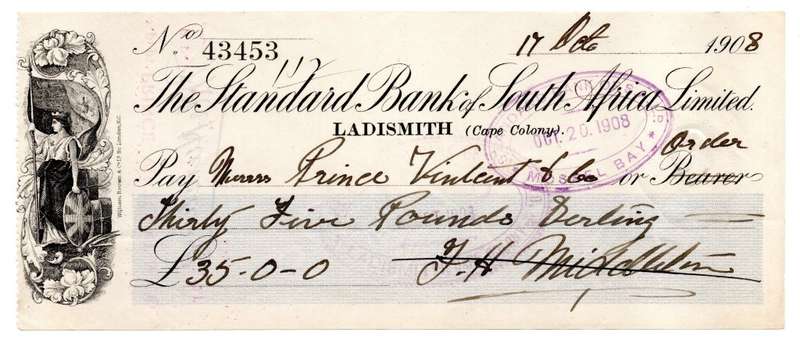 No 43453
17 Oct 1908
The Standard Bank of South Africa Limited.
LADISMITH (Cape Colony).
OCT. 20. 1908
MOSSEL BAY
Order
Pay Messrs Prince Vincent & Co or Bearer
Thirty Five Pounds Sterling
£ 35-0-0
F. H. Middleton